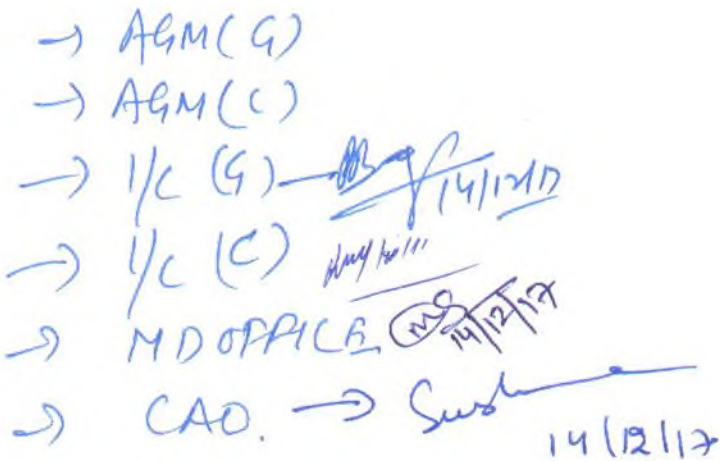 → AGM(G)
→ AGM(C)
→ I/C (G) — 14/12/17
→ I/C (C)
→ MD OFFICE MS 14/12/17
→ CAO. →
14/12/17